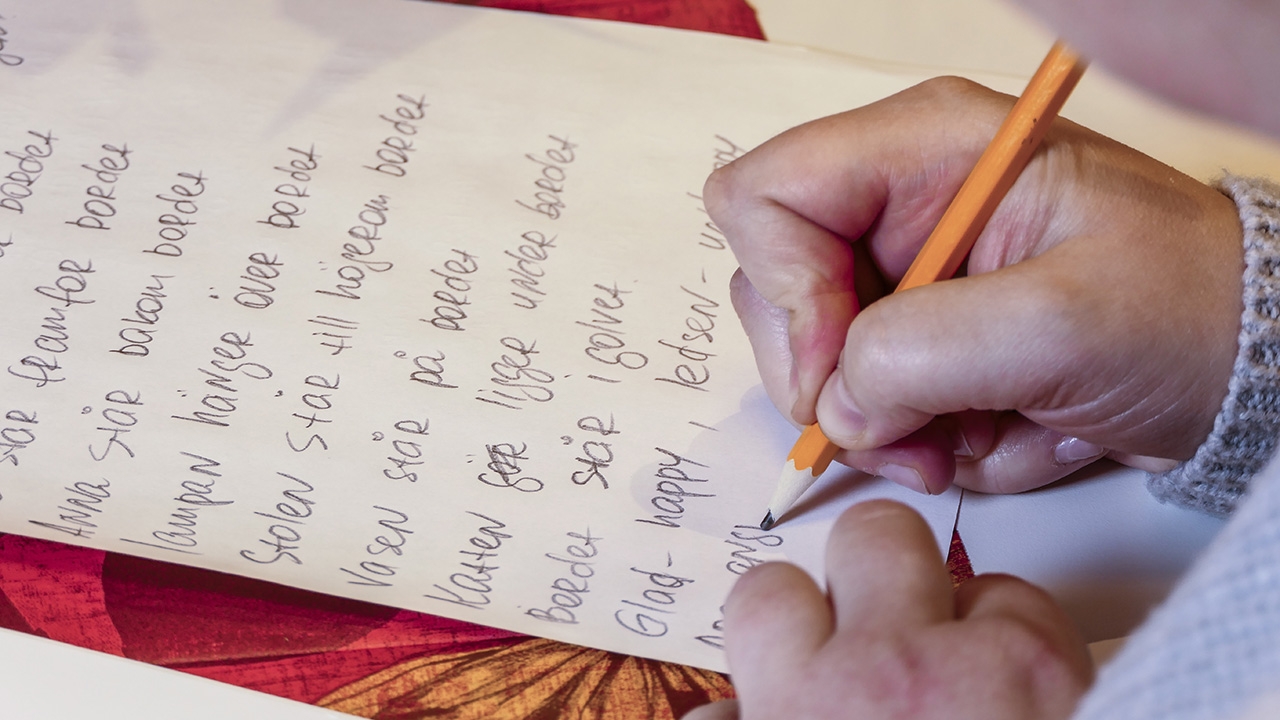 bordet
står framför bordet
Anna står bakom bordet
lampan hänger över bordet
Stolen står till högerom bordet
Vasen står på bordet
Katten ligger under bordet
Bordet står i golvet.
Glad- happy, ledsen-